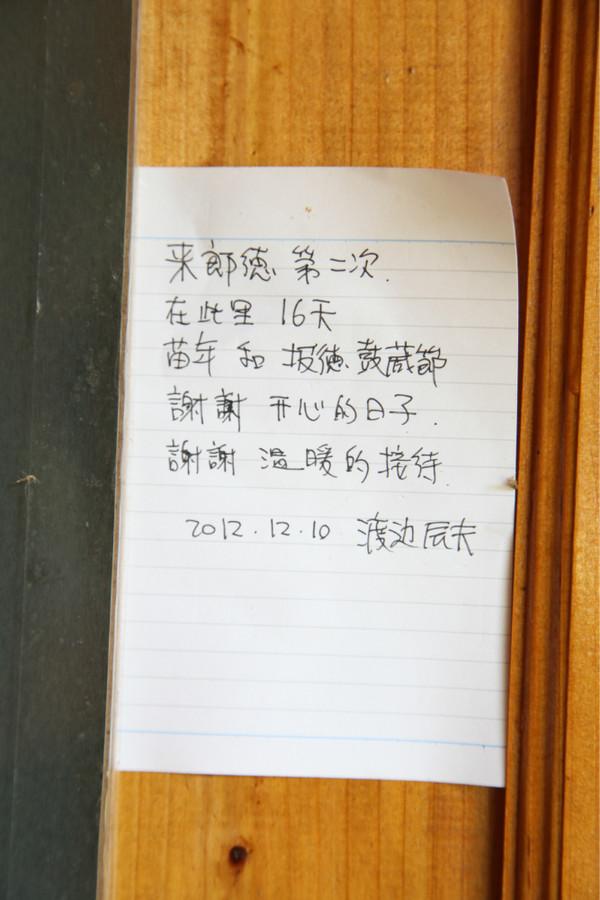 来郎徳 第二次.
在此里 16天
苗年 和 报徳 鼓蔵節
謝謝 开心的日子.
謝謝 温暖的接待.
2012.12.10 渡边辰夫